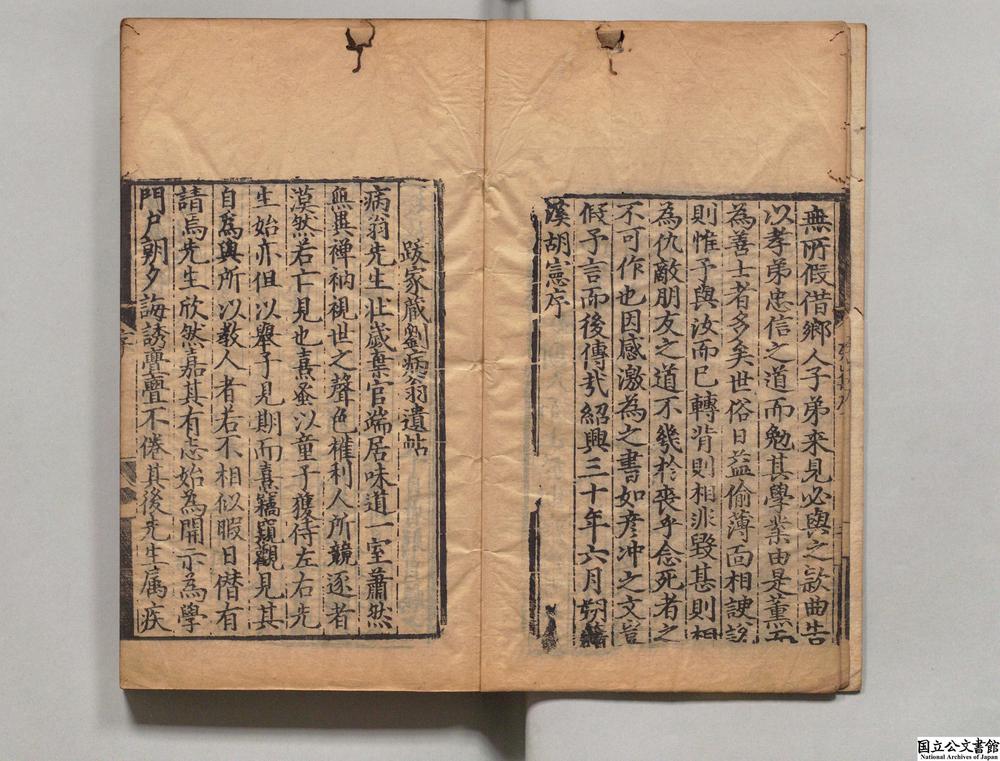 無所假借鄉人子弟來見必與之款曲告
以孝弟忠信之道而勉其學業由是薰而
為善士者多矣世俗日益偷薄面相諛說
則惟予與汝而已轉背則相非毀甚則相
為仇敵朋友之道不幾於喪乎念死者之
不可作也因感激為之書如彥沖之文豈
假予言而後傳哉紹興三十年六月朔籍
溪胡憲序
跋家藏劉病翁遺帖
病翁先生壯歲棄官端居味道一室蕭然
無異禪衲視世之聲色權利人所競逐者
漠然若亡見也熹蚤以童子獲侍左右先
生始亦但以舉子見期而熹竊窺觀見其
自為與所以教人者若不相似暇日僣有
請焉先生欣然嘉其有志始為開示為學
門戶朝夕誨誘亹亹不倦其後先生属疾
序
国立公文書館
National Archives of Japan